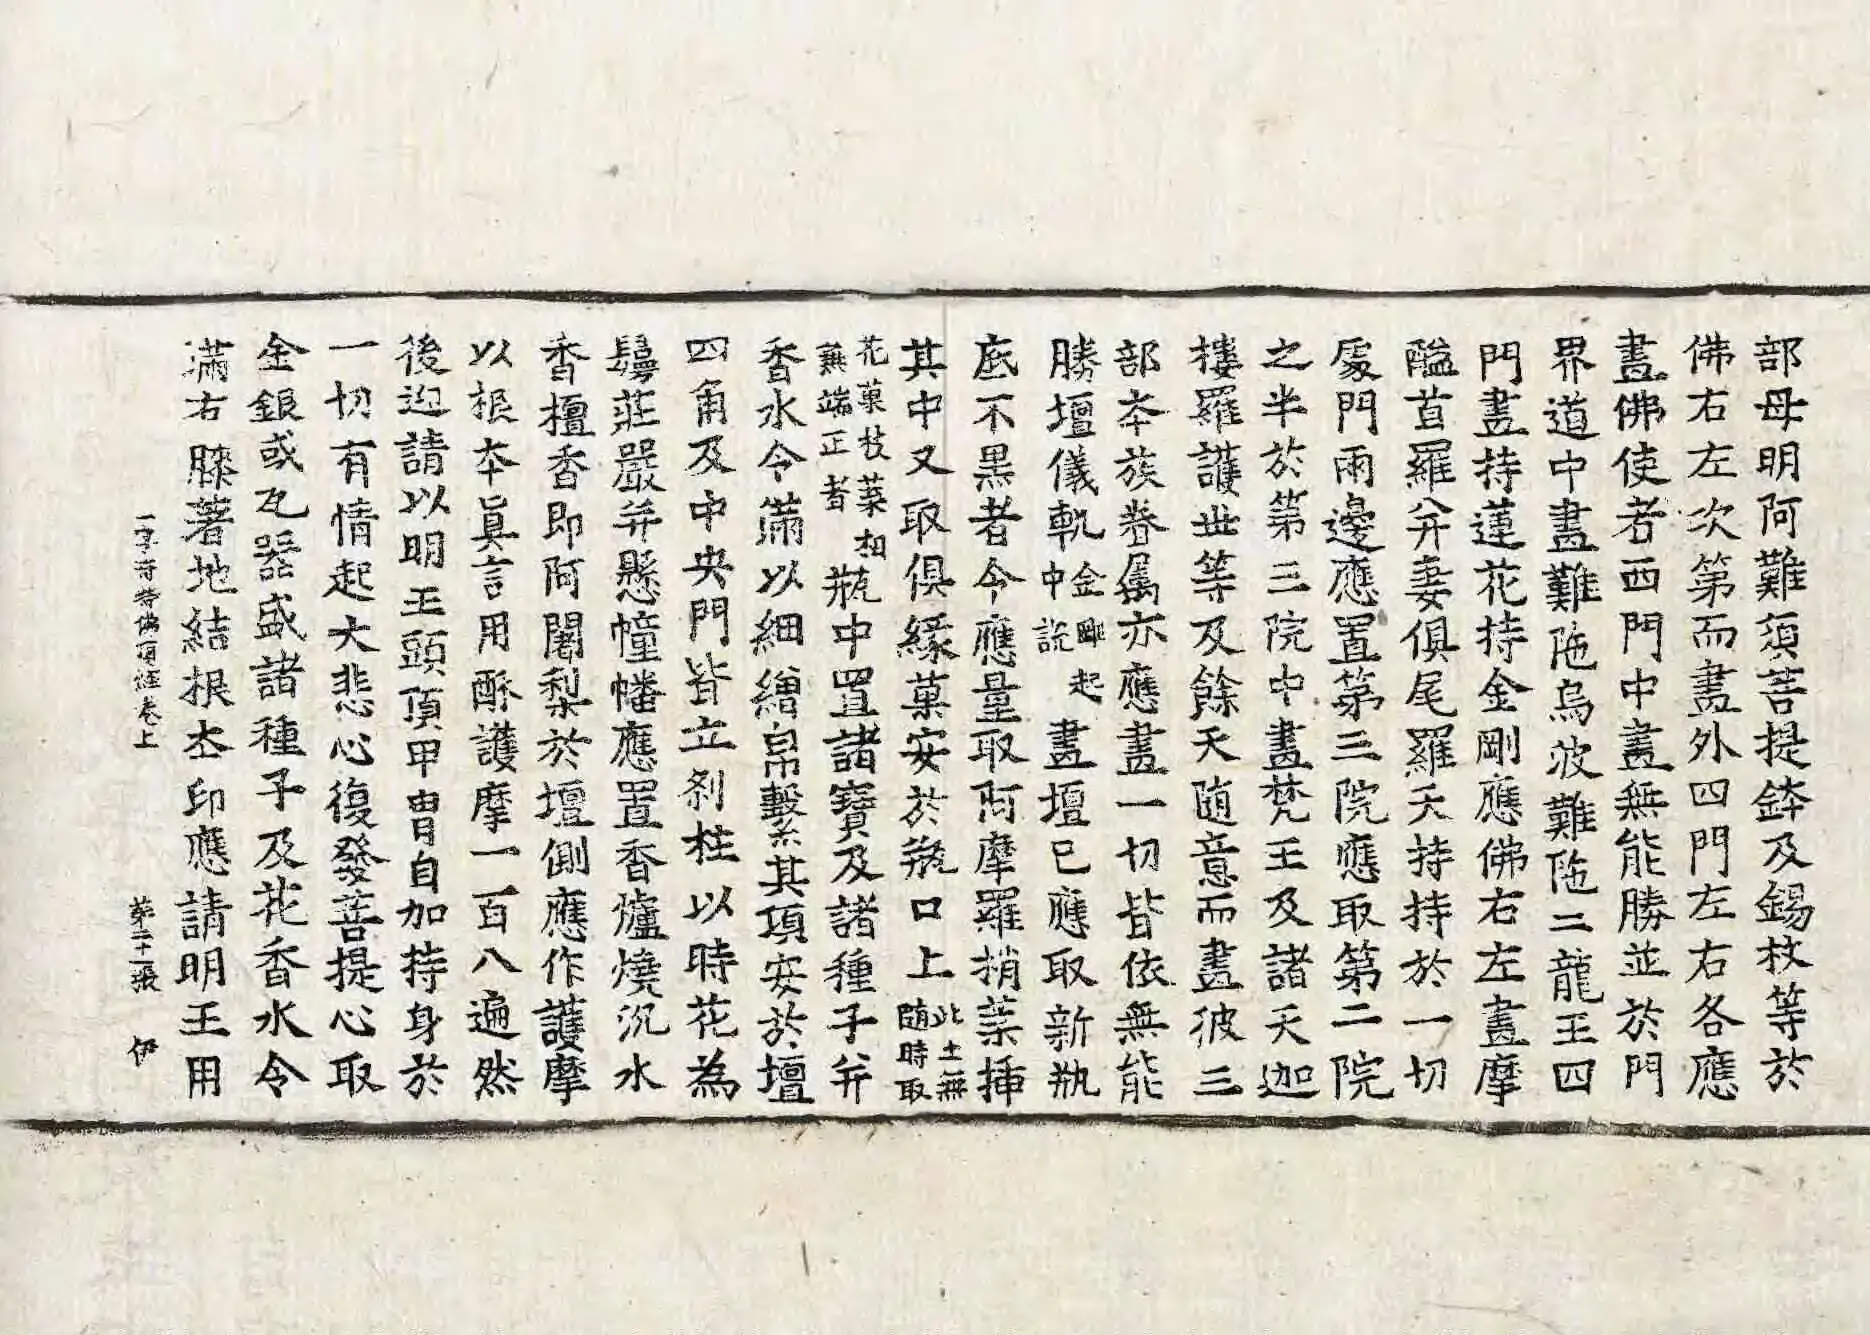 部母明阿難須菩提鉢及錫杖等於
佛右左次第而畫外四門左右各應
畫佛使者西門中畫無能勝並於門
界道中畫難陁烏波難陁二龍王四
門畫持蓮花持金剛應佛右左畫摩
醯首羅并妻俱尾羅天持持於一切
處門兩邊應置第三院應取第二院
之半於第三院中畫梵王及諸天迦
樓羅護世等及餘天随意而畫彼三
部本族眷屬亦應畫一切皆依無能
勝壇儀軌中說金剛起畫壇已應取新瓶
底不黑者令應量取阿摩羅梢葉揷
其中又取俱緣菓安於瓶口上此土無随時取
花菓枝葉相兼端正者瓶中置諸寶及諸種子并
香水令滿以細繒帛繫其項安於壇
四角及中央門皆立刹柱以時花為
鬘莊嚴并懸幢幡應置香爐燒沉水
香檀香即阿闍梨於壇側應作護摩
以根本真言用酥護摩一百八遍然
後迎請以明王頭頂甲冑自加持身於
一切有情起大悲心復發菩提心取
金銀或瓦器盛諸種子及花香水令
滿右膝著地結根本印應請明王用
一字奇特佛頂經卷上 第二十一張 伊